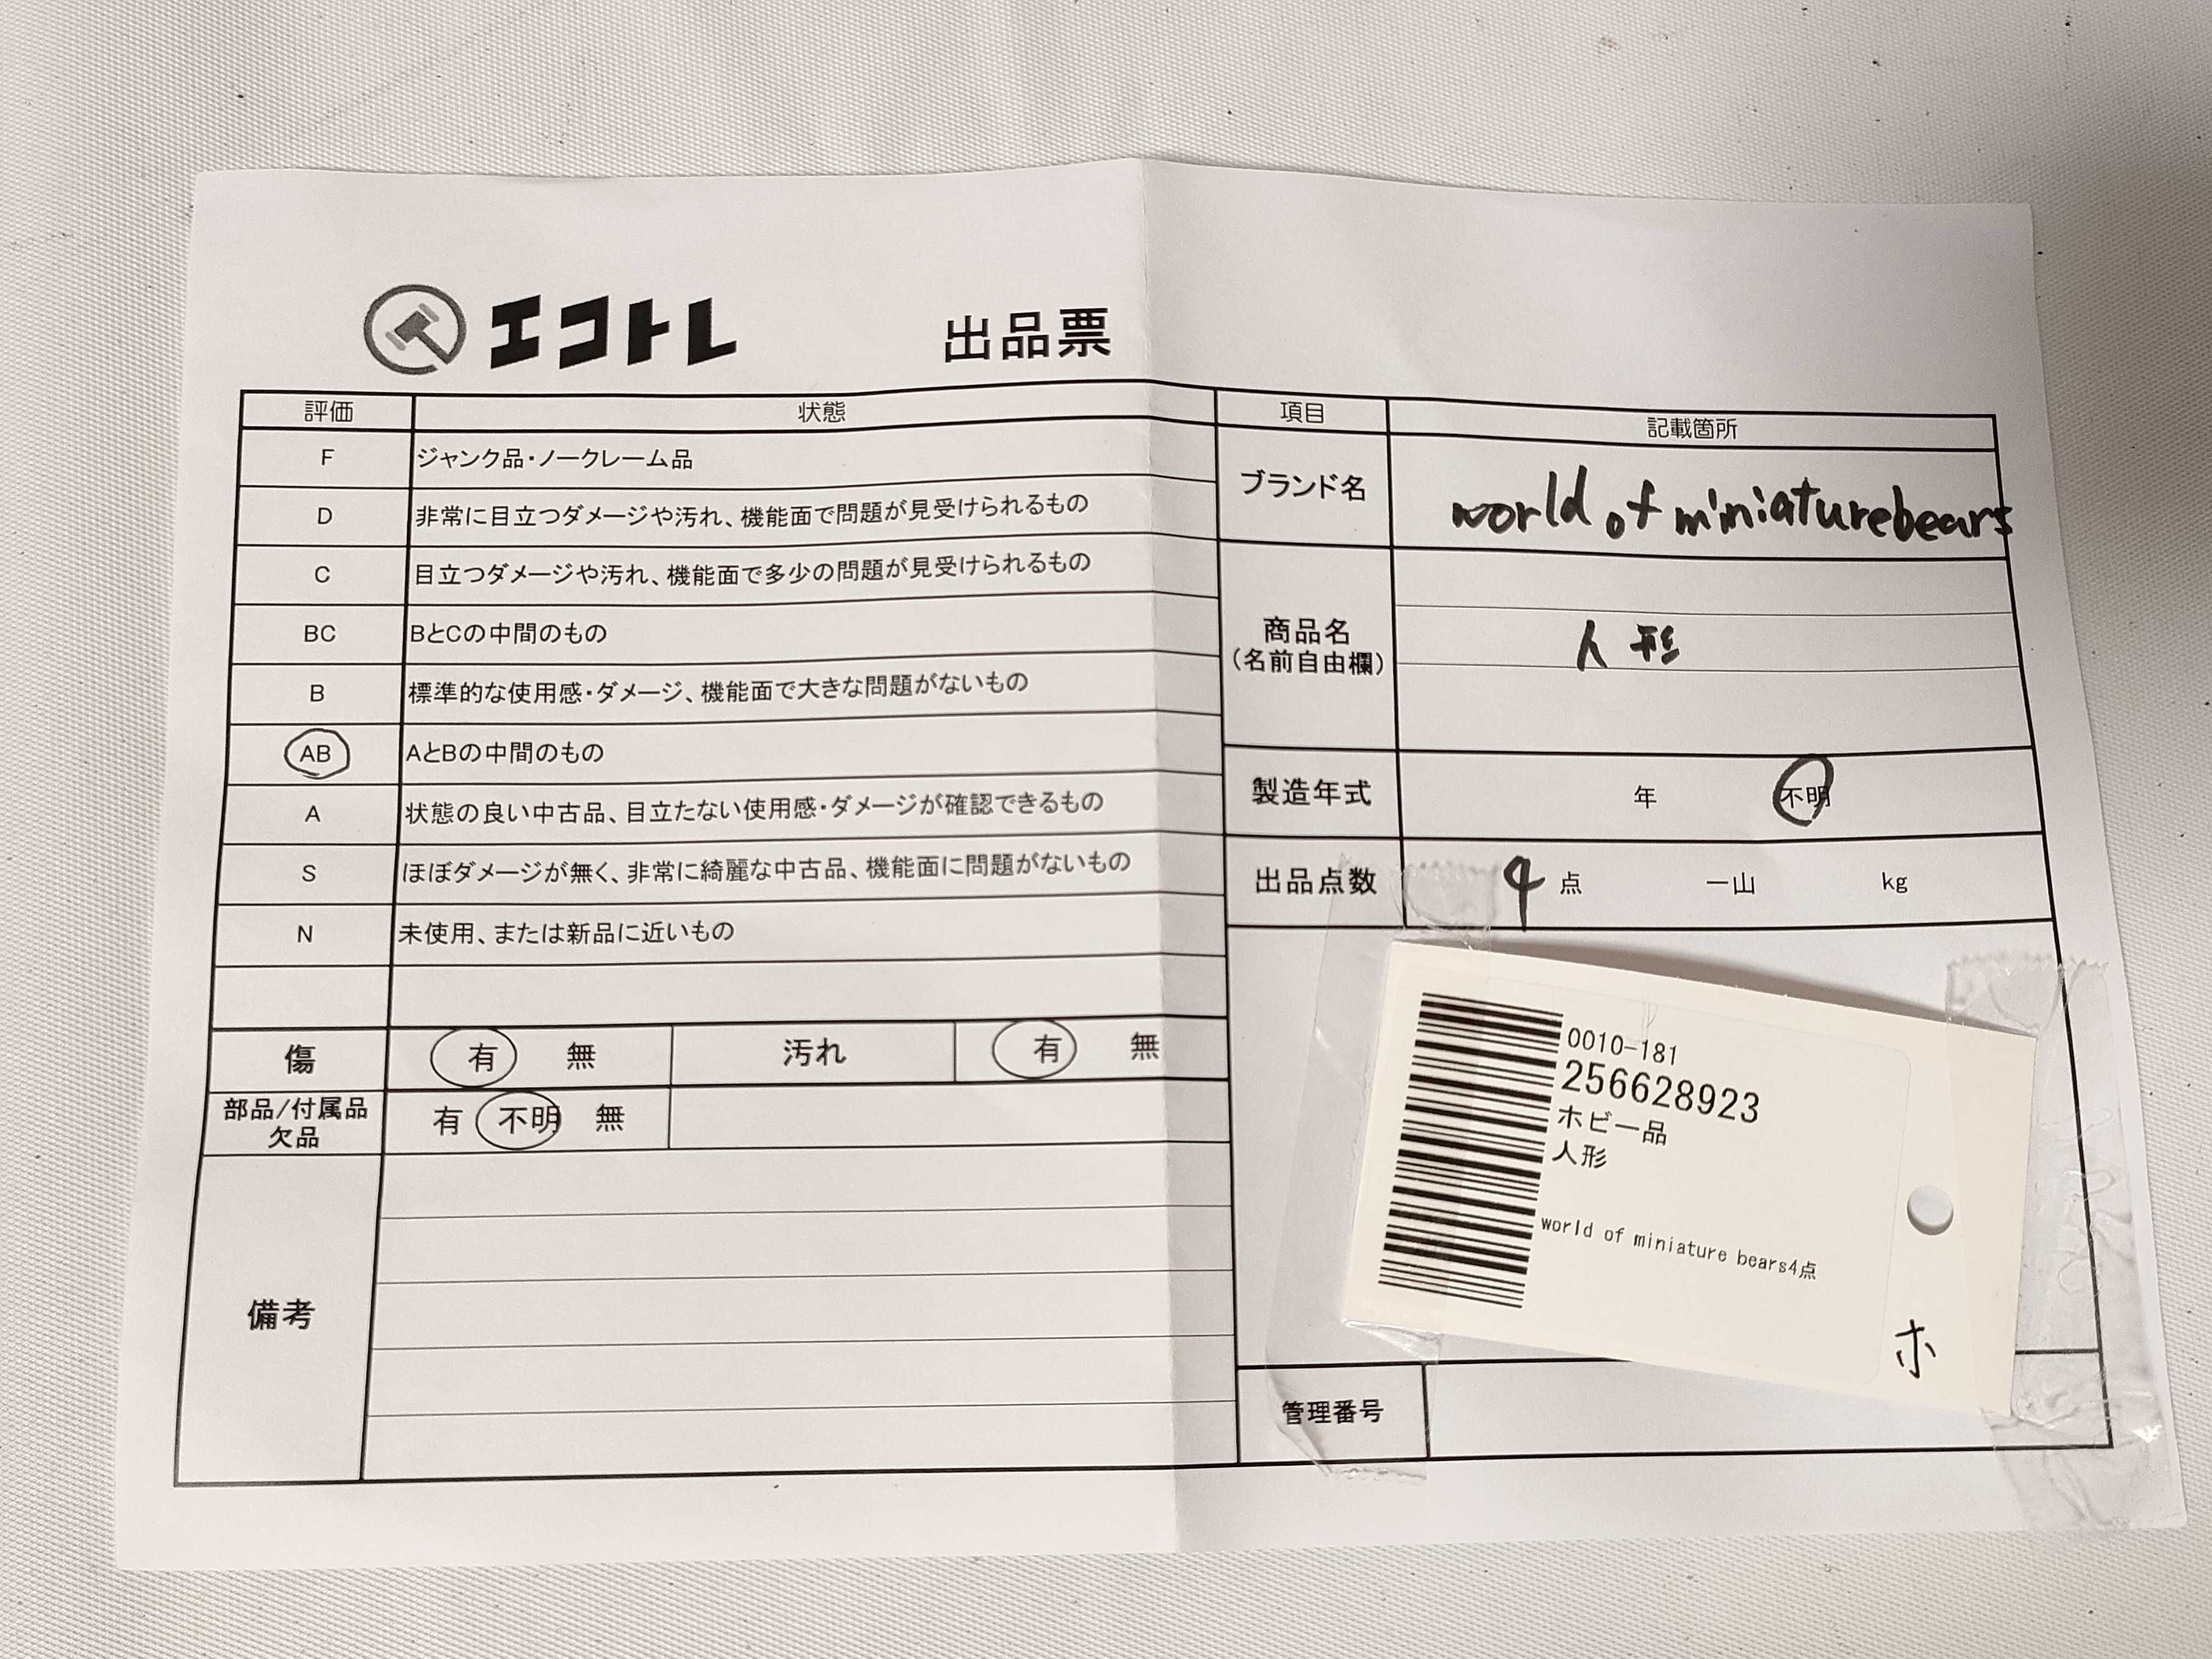 エコトレ 出品票
評価 状態
F ジャンク品・ノークレーム品
D 非常に目立つダメージや汚れ、機能面で問題が見受けられるもの
C 目立つダメージや汚れ、機能面で多少の問題が見受けられるもの
BC BとCの中間のもの
B 標準的な使用感・ダメージ、機能面で大きな問題がないもの
AB AとBの中間のもの
A 状態の良い中古品、目立たない使用感・ダメージが確認できるもの
S ほぼダメージが無く、非常に綺麗な中古品、機能面に問題がないもの
N 未使用、または新品に近いもの
傷 有 無 汚れ 有 無
部品/付属品
欠品
有 不明 無
備考
項目 記載箇所
ブランド名 world of miniaturebears
商品名
(名前自由欄)
人形
製造年式 年 不明
出品点数 4 点 一山 kg
0010-181
256628923
ホビー品
人形
world of miniature bears4点
ホ
管理番号